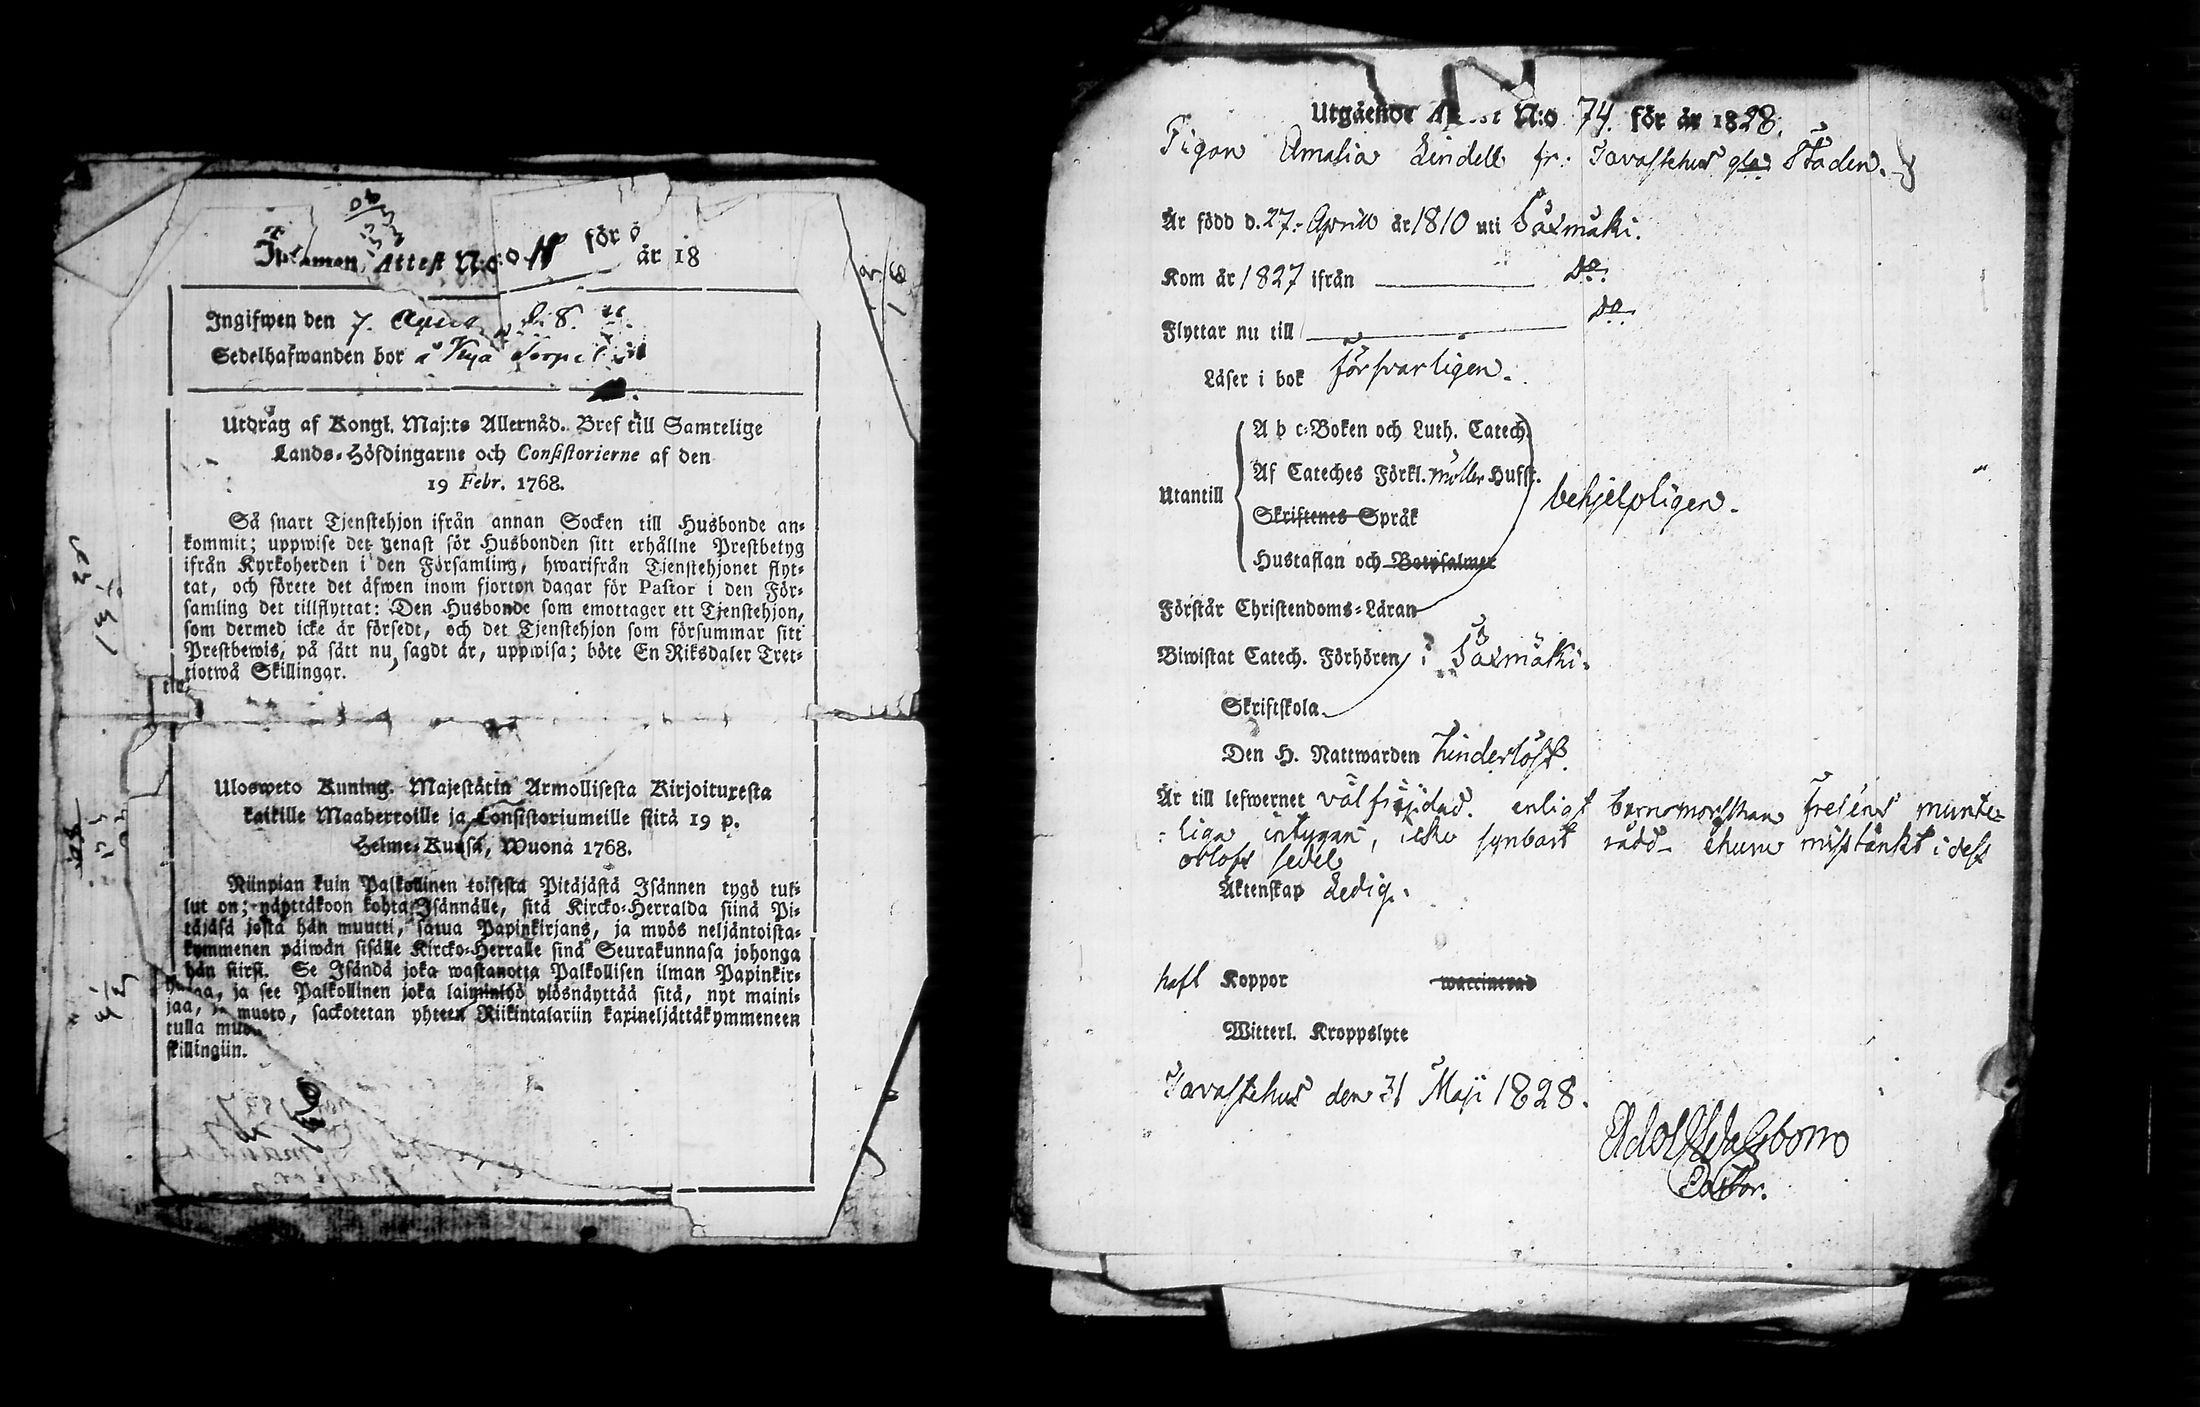 Inkommen Attest N:o för år 18
Ingifwen den 7. April
Sedelhafwanden bor å
Utdrag af Kongl. Maj:ts Allernåd. Bref till Samtelige
Lands-Höfdingarne och Consistorierne af den
19 Febr. 1768.
Så snart Tjenstehjon ifrån annan Socken till Husbonde an-
kommit; uppwise det genast för Husbonden sitt erhållne Prestbetyg
ifrån Kyrkoherden i den Församling, hwarifrån Tjenstehjonet flyt-
tat, och förete det äfwen inom fjorton dagar för Pastor i den För-
samling det tillflyttat: Den Husbonde som emottager ett Tjenstehjon,
som dermed icke är försedt, och det Tjenstehjon som försummar sitt
Prestbewis, på sätt nu sagdt är, uppwisa; böte En Riksdaler Tret-
tiotwå Skillingar.
Ulosweto Kuning. Majestätin Armollisesta Kirjoituxesta
kaikille Maaherroille ja Consistoriumeille siitä 19 p.
Helme-Kuusa, Wuona 1768.
Niinpian kuin Palkollinen toisesta Pitäjästä Isännen tygö tul-
lut on; näyttäkoon kohta Isännälle, sitä Kircko-Herralda siinä Pi-
täjäsä josta hän muutti, saatua Papinkirjans, ja myös neljäntoista-
kymmenen päiwän sisälle Kircko-Herralle sinä Seurakunnasa johonga
hän siirsi. Se Isändä joka wastanotta Palkollisen ilman Papinkir-
jaa, ja see Palkollinen joka laiminlyö ylösnäyttää sitä, nyt maini-
tulla muoto, sackotetan yhteen Riikintalariin kaxineljättäkymmeneen
skillingiin.
Utgående Attest N:o 74. för år 1828.
Pigan Amalia Lindell fr: Tavastehus gla Staden.
Är född d. 27. April år 1810 uti Säxmäki.
Kom år 1827 ifrån Do.
Flyttar nu till Do.
Läser i bok försvarligen.
Utantill
A b c-Boken och Luth. Catech.
Af Cateches Förkl. Möller Hufst.
Skriftenes Språk
Hustaflan och Botpsalmer
behjelpligen.
Förstår Christendoms-Läran
Biwistat Catech. Förhören i Säxmäki.
Skriftskola
Den H. Nattwarden hinderlöst.
Är till lefwernet välfräjdad. enligt barnmorskan Freséns munte-
liga intygan, icke synbart rådd ehuru misstänkt i dess
orlofs sedel
Äktenskap Ledig.
haft Koppor waccinerad
Witterl. Kroppslyte
Tavastehus den 31 Maji 1828.
Pastor.